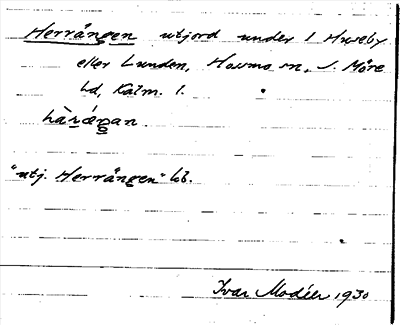 Herrängen utjord under 1 Huseby
eller Lunden, Hossmo sn, S. Möre
hd, Kalm. l.
"utj. Herrängen" kb.
Ivar Modéer 1930